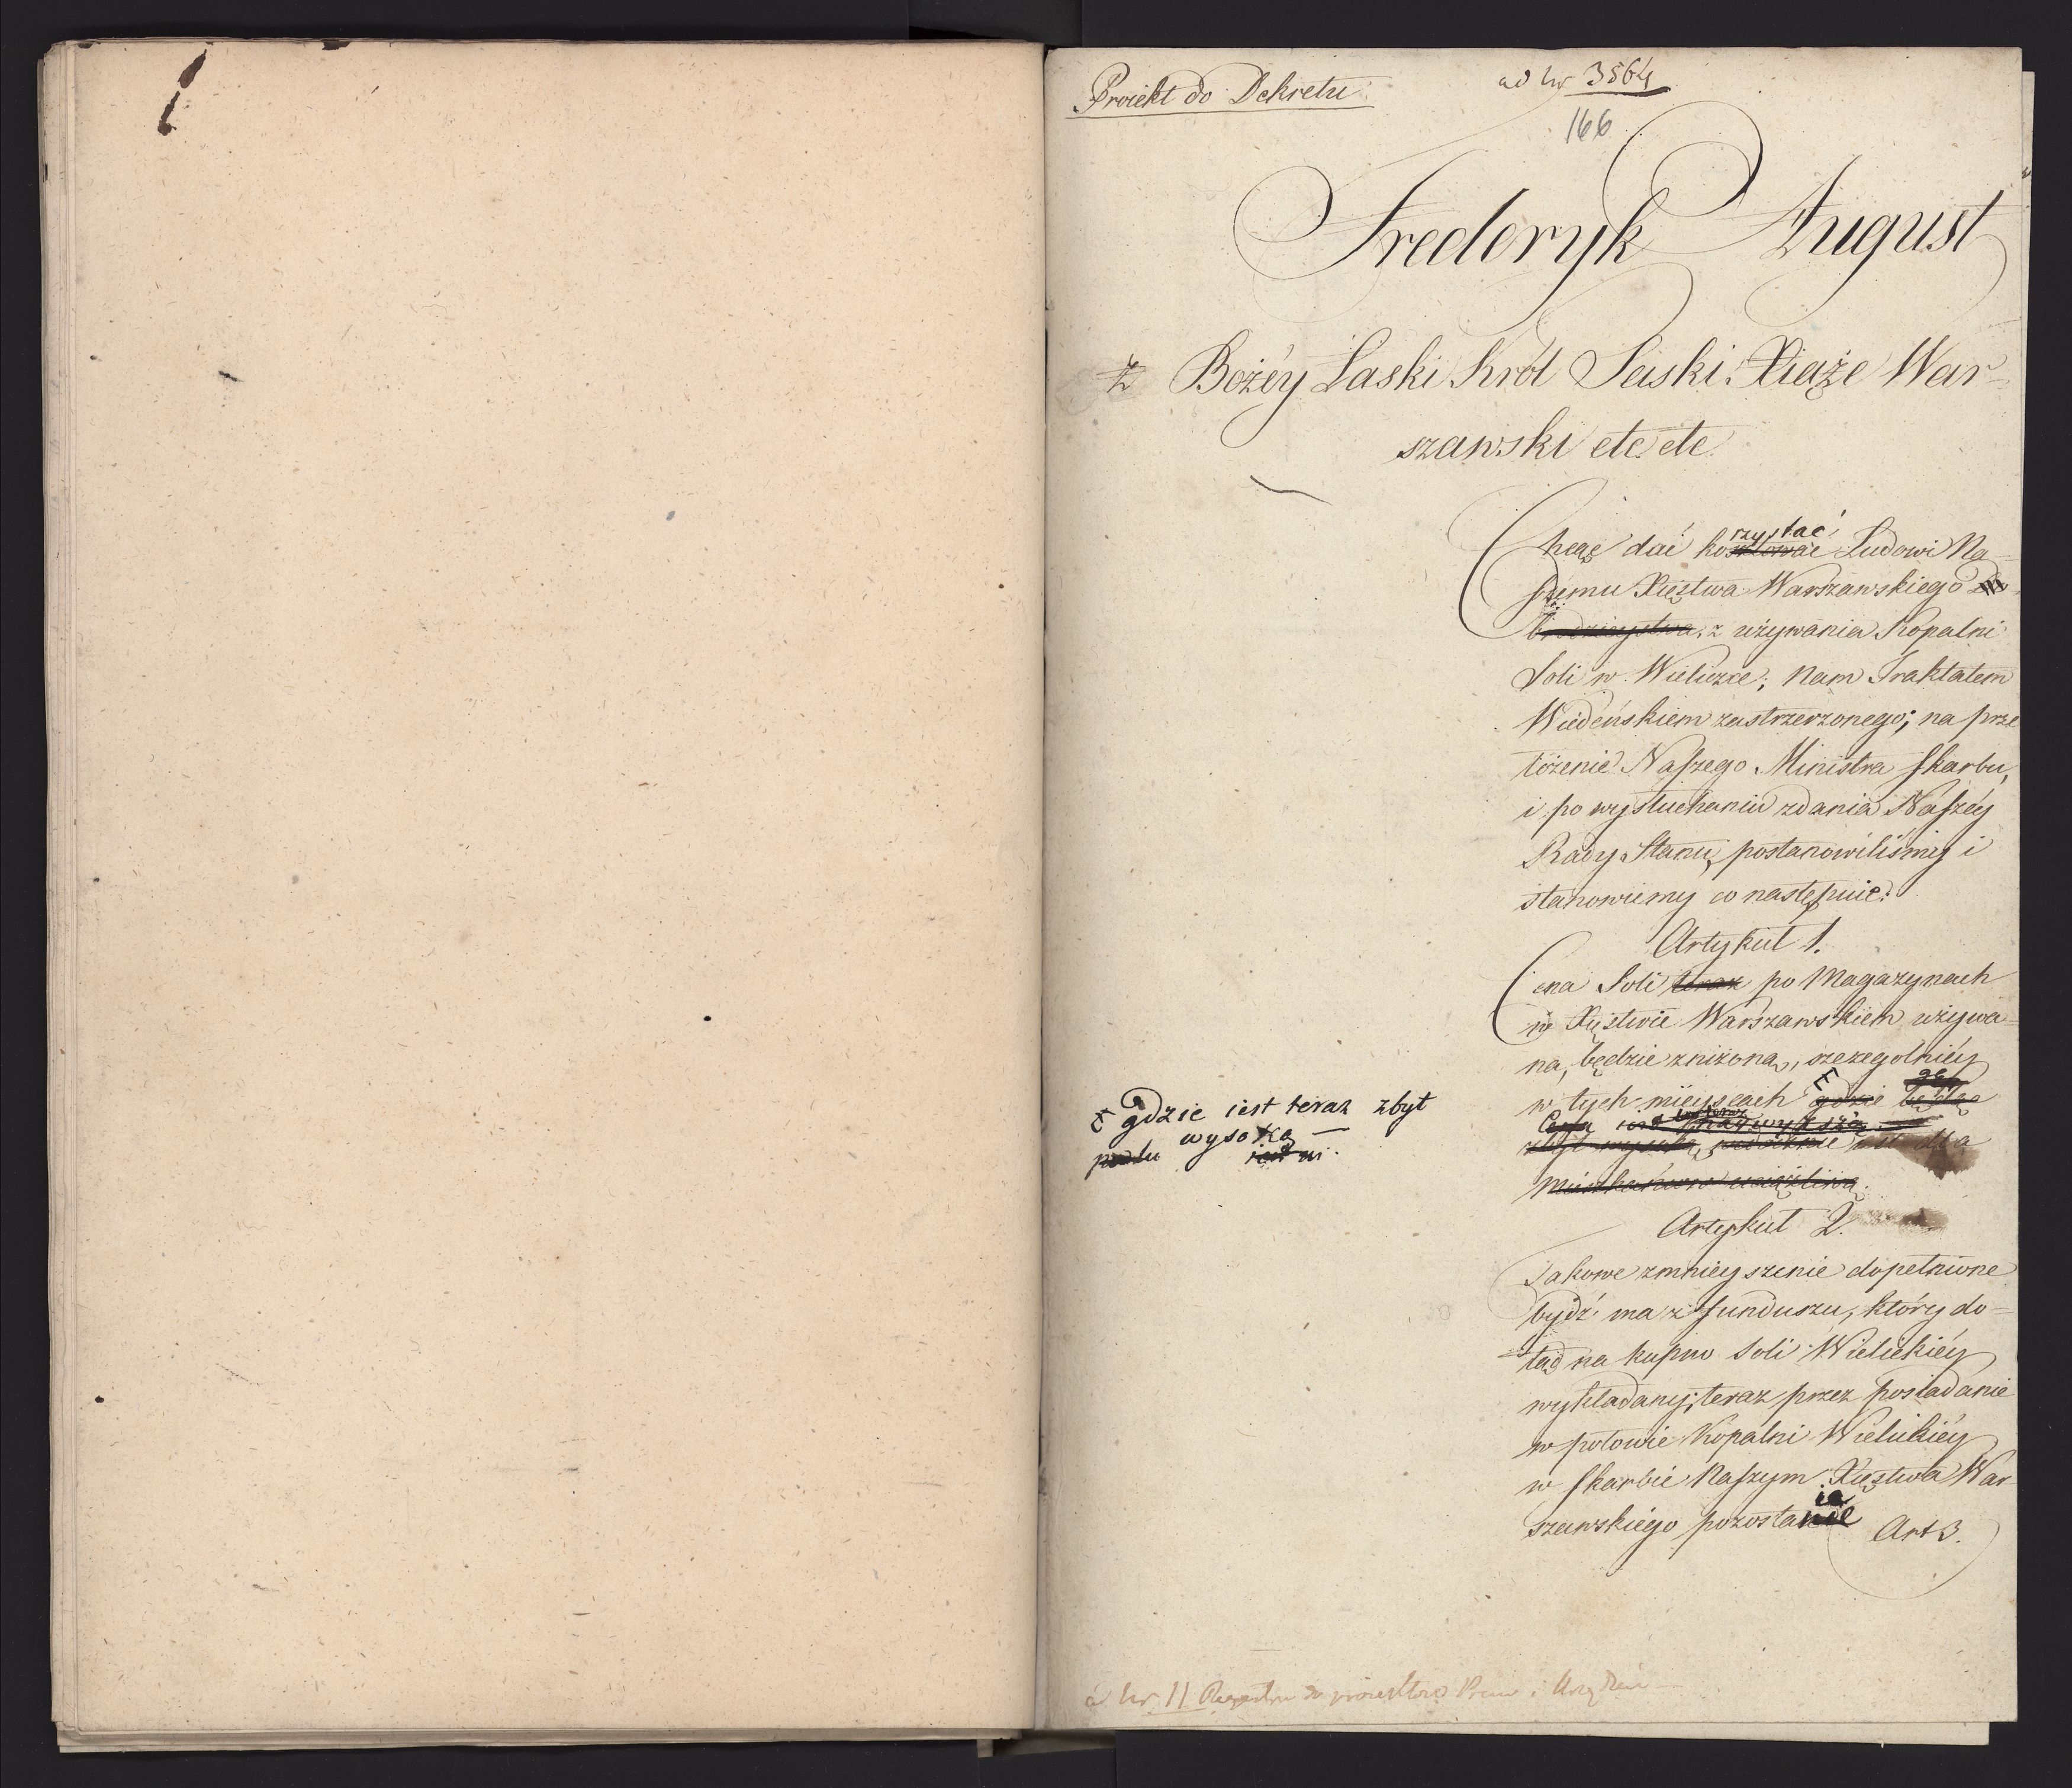 Proiekt do Dekretu
ad Nr 3564
166
Frederyk August
Z Bożéy Łaski Król Saski, Xiąże War-
szawski etc etc
Chcąc dać korzystać Ludowi Na-
szemu Xięstwa Warszawskiego
z używania Kopalni
Soli w Wieliczce, Nam Traktatem
Wiedeńskiem zastrzerzonego; na prze
łożenie Naszego Ministra Skarbu,
i po wysłuchaniu zdania Naszéy
Rady Stanu, postanowiliśmy i
stanowiemy co następuie:
Artykuł 1.
Cena Soli teraz po Magazynach
w Xięstwie Warszawskiem używa-
na, będzie zniżona, szczególniéy
w tych mieyscach gdzie
Cena
zbyt wysoka
mieszkańców uciążliwą.
gdzie iest teraz zbyt
wysoką
Artykuł 2.
Takowe zmnieyszenie dopełnione
bydź ma z funduszu, który do-
tąd na kupno Soli Wielickiéy
wykładany, teraz przez posiadanie
w połowie Kopalni Wielickiéy
w Skarbie Naszym Xięstwa War
szawskiego pozostaie
Art 3.
Nr 11